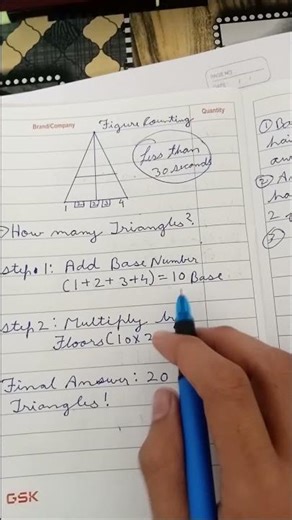 PAGE NO.
DATE
Brand/Company
Quantity
Figure Counting
Less than
30 seconds
1 2 3 4
How many Triangles?
Step·1: Add Base Number
(1+2+3+4) = 10 Base
Step 2: Multiply
Floors (10x2
Final Answer: 20
Triangles!
GSK
① Ba
hai
au
② A
ha
2